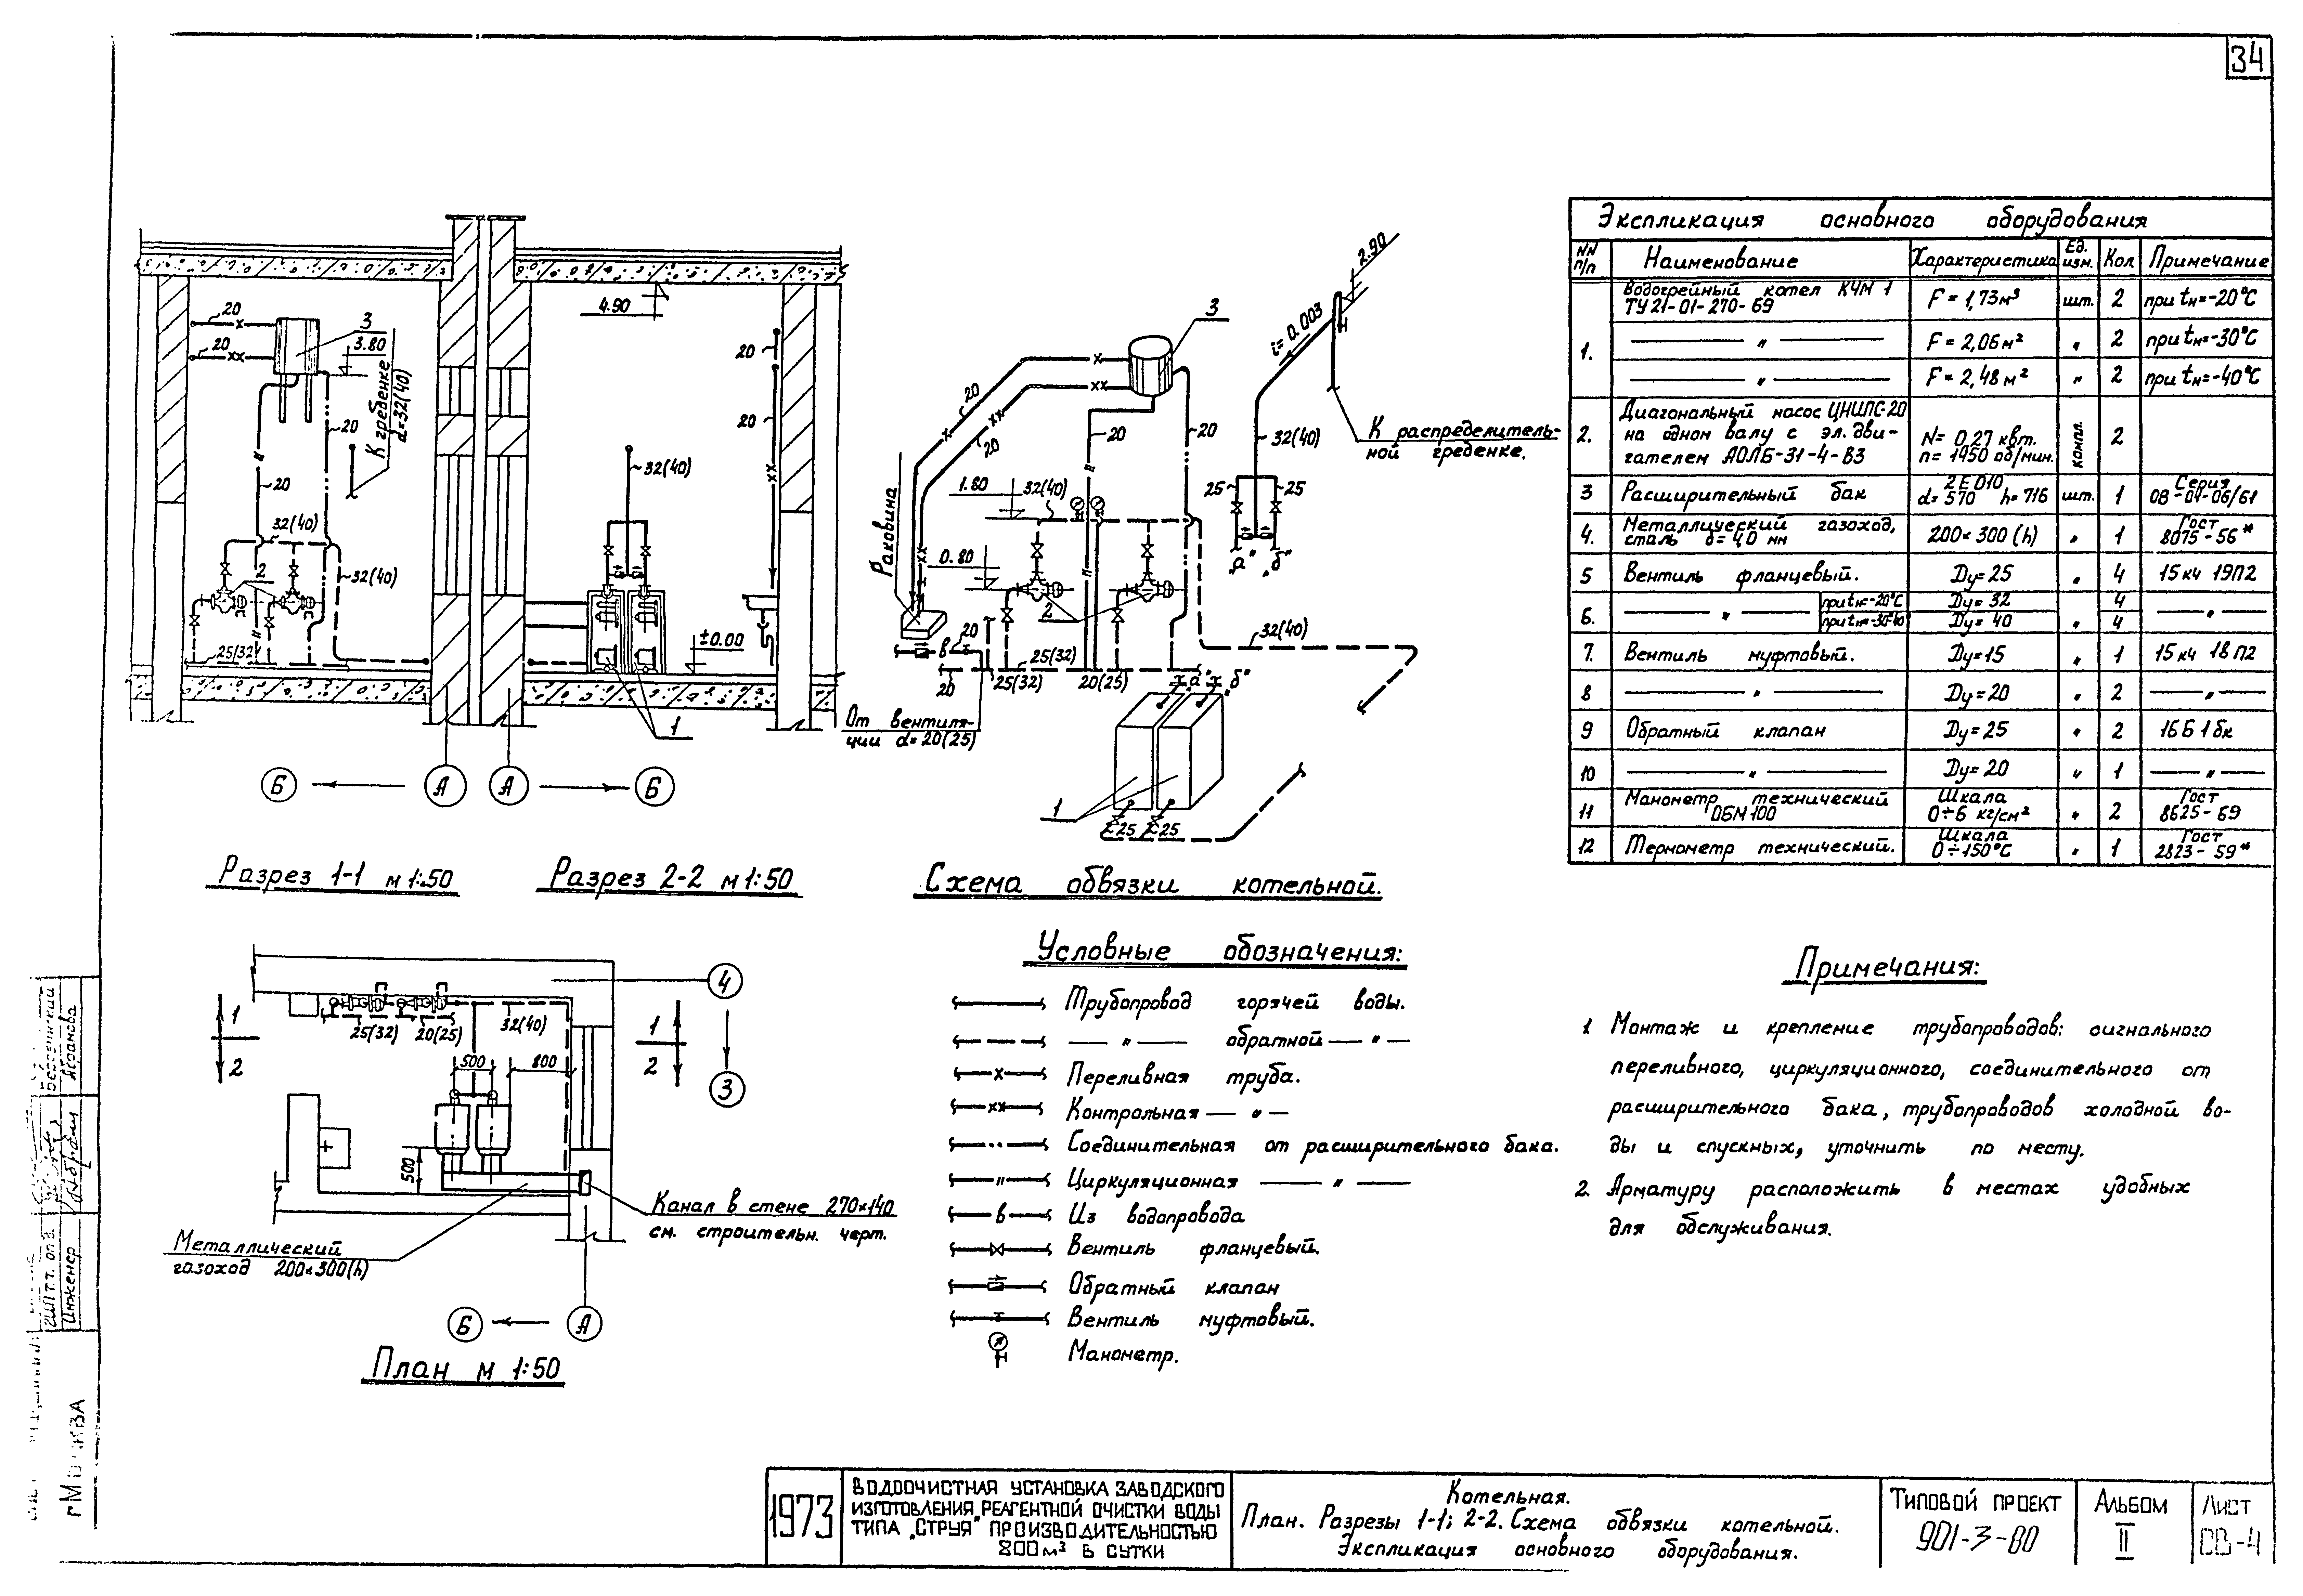 34
20
20
3
3.80
20
К гребенке
d=32(40)
20
32(40)
2
32(40)
25(32)
4.90
32(40)
20
20
±0.00
1
Б
А
А
Б
Разрез 1-1 м 1:50
Разрез 2-2 м 1:50
3
20
20
20
20
Раковина
1.80
32(40)
0.80
2
в
20
20
25(32)
25(32)
20(25)
"а"
"б"
32(40)
От вентиля-
ции d=20(25)
1
25
25
i=0.003
2.90
32(40)
К распределитель-
ной гребенке.
25
25
"а"
"б"
Схема обвязки котельной.
Экспликация основного оборудования
NN п/п
Наименование
Характеристика
Ед. изм.
Кол
Примечание
1.
Водогрейный котел КЧМ 1
ТУ21-01-270-69
F=1,73м³
шт.
2
при tн=-20°С
—— " ——
F=2,06м²
"
2
при tн=-30°С
—— " ——
F=2,48м²
"
2
при tн=-40°С
2.
Диагональный насос ЦНИПС-20
на одном валу с эл. дви-
гателем АОЛБ-31-4-В3
N=0,27 квт.
n=1450 об/мин.
компл.
2
3
Расширительный бак
2Е010
d=570 h=716
шт.
1
Серия
08-04-06/61
4.
Металлический газоход,
сталь δ=4,0 мм
200×300(h)
"
1
Гост
8075-56*
5
Вентиль фланцевый.
Dу=25
"
4
15 кч 19П2
6.
—— " ——
при tн=-20°С
Dу=32
4
при tн=-30-40°
Dу=40
"
4
—— " ——
7.
Вентиль муфтовый.
Dу=15
"
1
15 кч 18П2
8
—— " ——
Dу=20
"
2
—— " ——
9
Обратный клапан
Dу=25
"
2
16Б1бк
10
—— " ——
Dу=20
"
1
—— " ——
11
Манометр технический
ОБМ100
Шкала
0÷6 кг/см²
"
2
Гост
8625-69
12
Термометр технический.
Шкала
0÷150°С
"
1
Гост
2823-59*
4
1
1
2
2
3
25(32)
20(25)
32(40)
500
800
500
Канал в стене 270×140
см. строительн. черт.
Металлический
газоход 200×300(h)
Б
А
План м 1:50
Условные обозначения:
Трубопровод горячей воды.
—— " —— обратной —— " ——
Переливная труба.
Контрольная — " —
Соединительная от расширительного бака.
Циркуляционная —— " ——
в Из водопровода
Вентиль фланцевый.
Обратный клапан
Вентиль муфтовый.
Манометр.
Примечания:
1 Монтаж и крепление трубопроводов: сигнального
переливного, циркуляционного, соединительного от
расширительного бака, трубопроводов холодной во-
ды и спускных, уточнить по месту.
2. Арматуру расположить в местах удобных
для обслуживания.
Инженер
Агранова
1973
ВОДООЧИСТНАЯ УСТАНОВКА ЗАВОДСКОГО
ИЗГОТОВЛЕНИЯ РЕАГЕНТНОЙ ОЧИСТКИ ВОДЫ
ТИПА "СТРУЯ" ПРОИЗВОДИТЕЛЬНОСТЬЮ
800м³ В СУТКИ
Котельная.
План. Разрезы 1-1; 2-2. Схема обвязки котельной.
Экспликация основного оборудования.
ТИПОВОЙ ПРОЕКТ
901-3-80
АЛЬБОМ
II
ЛИСТ
ОВ-4